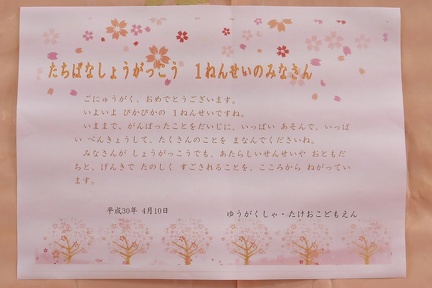 たちばなしょうがっこう　１ねんせいのみなさん
ごにゅうがく、おめでとうございます。
いよいよ ぴかぴかの １ねんせいですね。
いままで、がんばったことをだいじに、いっぱい あそんで、いっぱ
い べんきょうして、たくさんのことを まなんでくださいね。
みなさんが しょうがっこうでも、あたらしいせんせいや おともだ
ちと、げんきで たのしく すごされることを、こころから ねがってい
ます。
平成30年 4月10日
ゆうがくしゃ・たけおこどもえん